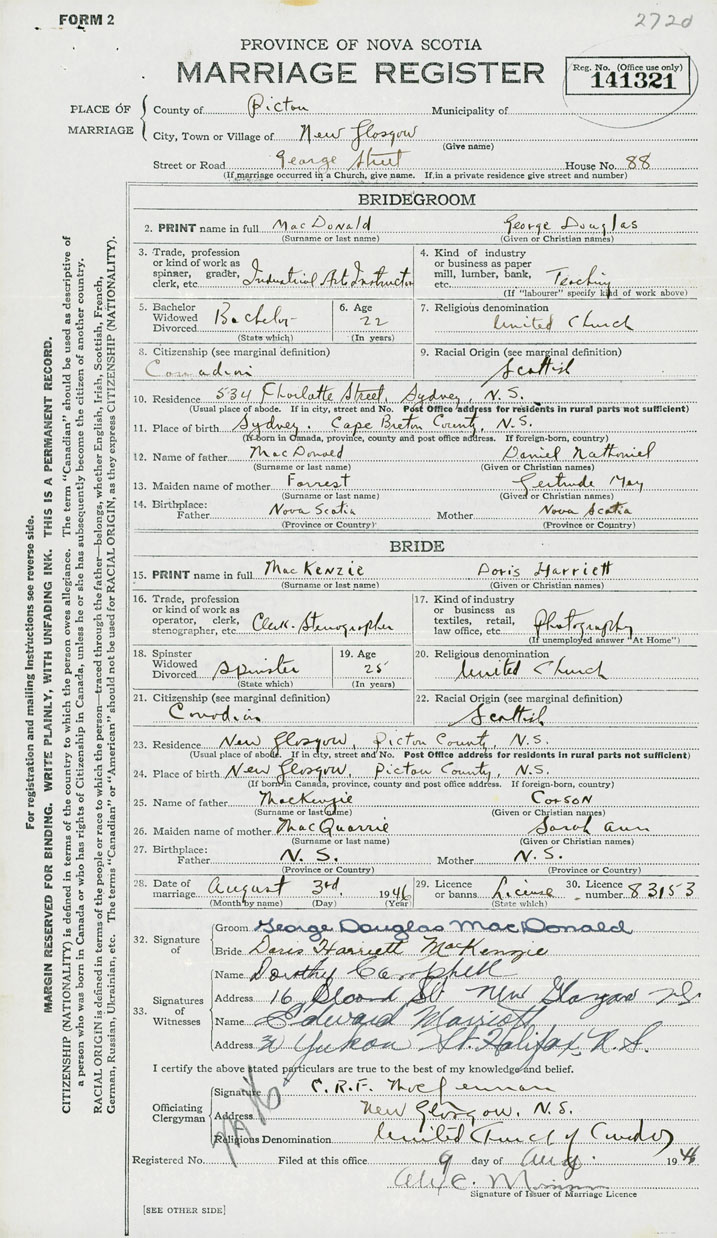 FORM 2
2720
PROVINCE OF NOVA SCOTIA
MARRIAGE REGISTER
Reg. No. (Office use only)
141321
PLACE OF MARRIAGE
County of Pictou Municipality of
City, Town or Village of New Glasgow
(Give name)
Street or Road George Street House No. 88
(If marriage occurred in a Church, give name. If in a private residence give street and number)
BRIDEGROOM
2. PRINT name in full MacDonald George Douglas
(Surname or last name) (Given or Christian names)
3. Trade, profession or kind of work as spinner, grader, clerk, etc. Industrial Arts Instructor
4. Kind of industry or business as paper mill, lumber, bank, etc. Teaching
(If "labourer" specify kind of work above)
5. Bachelor Widowed Divorced Bachelor
(State which)
6. Age 22
(In years)
7. Religious denomination
United Church
8. Citizenship (see marginal definition)
Canadian
9. Racial Origin (see marginal definition)
Scottish
10. Residence 534 Charlotte Street, Sydney, N.S.
(Usual place of abode. If in city, street and No. Post Office address for residents in rural parts not sufficient)
11. Place of birth Sydney, Cape Breton County, N.S.
(If born in Canada, province, county and post office address. If foreign-born, country)
12. Name of father MacDonald Daniel Nathaniel
(Surname or last name) (Given or Christian names)
13. Maiden name of mother Forrest Gertrude May
(Surname or last name) (Given or Christian names)
14. Birthplace: Father Nova Scotia Mother Nova Scotia
(Province or Country) (Province or Country)
BRIDE
15. PRINT name in full MacKenzie Doris Harriett
(Surname or last name) (Given or Christian names)
16. Trade, profession or kind of work as operator, clerk, stenographer, etc. Clerk-Stenographer
17. Kind of industry or business as textiles, retail, law office, etc. Photography
(If unemployed answer "At Home")
18. Spinster Widowed Divorced Spinster
(State which)
19. Age 25
(In years)
20. Religious denomination
United Church
21. Citizenship (see marginal definition)
Canadian
22. Racial Origin (see marginal definition)
Scottish
23. Residence New Glasgow, Pictou County, N.S.
(Usual place of abode. If in city, street and No. Post Office address for residents in rural parts not sufficient)
24. Place of birth New Glasgow, Pictou County, N.S.
(If born in Canada, province, county and post office address. If foreign-born, country)
25. Name of father MacKenzie Carson
(Surname or last name) (Given or Christian names)
26. Maiden name of mother MacQuarrie Sarah Ann
(Surname or last name) (Given or Christian names)
27. Birthplace: Father N.S. Mother N.S.
(Province or Country) (Province or Country)
28. Date of marriage August 3rd 1946
(Month by name) (Day) (Year)
29. Licence or banns License
(State which)
30. Licence number 83153
32. Signature of
Groom George Douglas MacDonald
Bride Doris Harriett MacKenzie
33. Signatures of Witnesses
Name Dorothy Campbell
Address 16 St New Glasgow NS
Name Edward Marriott
Address Yukon St. Halifax, N.S.
I certify the above stated particulars are true to the best of my knowledge and belief.
Officiating Clergyman
Signature C.R.F. MacLennan
Address New Glasgow, N.S.
Religious Denomination United Church of Canada
Registered No. Filed at this office 9 day of Aug. 1946
Signature of Issuer of Marriage Licence
[SEE OTHER SIDE]
For registration and mailing Instructions see reverse side.
MARGIN RESERVED FOR BINDING. WRITE PLAINLY, WITH UNFADING INK. THIS IS A PERMANENT RECORD.
CITIZENSHIP (NATIONALITY) is defined in terms of the country to which the person owes allegiance. The term "Canadian" should be used as descriptive of
a person who was born in Canada or who has rights of Citizenship in Canada, unless he or she has subsequently become the citizen of another country.
RACIAL ORIGIN is defined in terms of the people or race to which the person—traced through the father—belongs, whether English, Irish, Scottish, French,
German, Russian, Ukrainian, etc. The terms "Canadian" or "American" should not be used for RACIAL ORIGIN, as they express CITIZENSHIP (NATIONALITY).